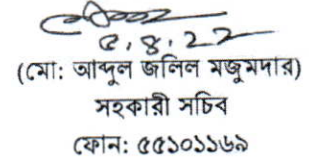 ৫.৪.২২
(মো: আব্দুল জলিল মজুমদার)
সহকারী সচিব
ফোন: ৫৫১০১১৬৯